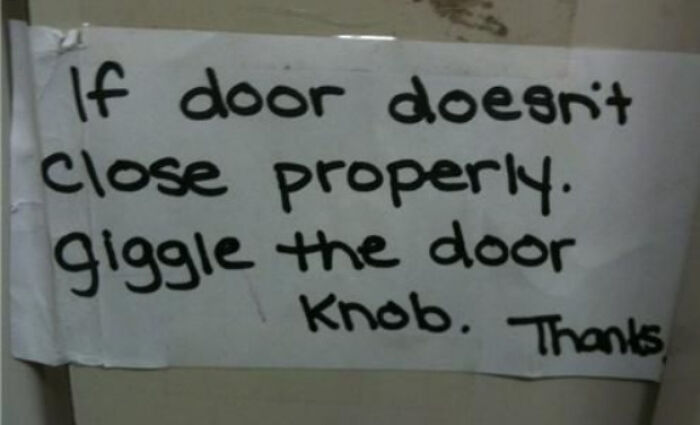 If door doesn't
close properly.
giggle the door
knob. Thanks.